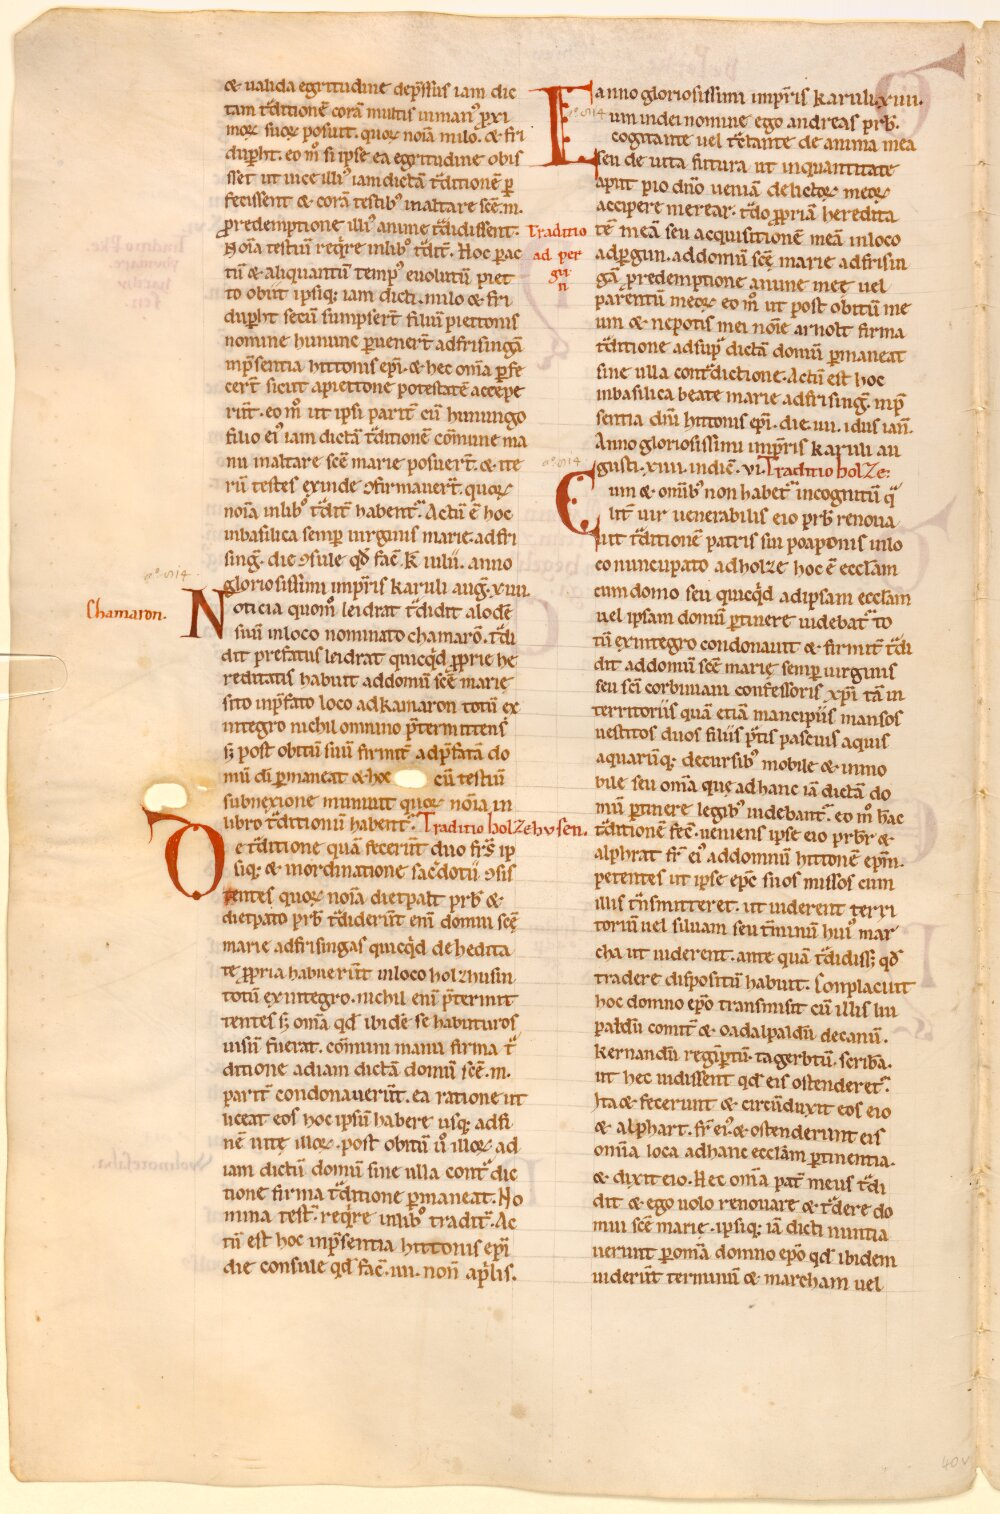 & ualida egritudine dep̄ssus iam dic
tam t̄ditionē corā multis inmanꝰ p̱xi
moꝝ suoꝝ posuit. quoꝝ noīa milo. & fri
dup̱ht. eo m̊ si ipse ea egritudine obis
sset ut uice illiꝰ iam dictā t̄ditionē p̱
fecissent & corā testibꝰ inaltare scē.m.
p̱redemptione illiꝰ anime t̄didissent.
Noīa testiū req̇re inlibꝰ t̄dit̄. Hoc pac
tū & aliquantū tempꝰ euolutū piet
to obiit ipsiq; iam dicti. milo & fri
dup̱ht secū sumpsert̄ filiū piettonis
nomine hunune p̱uenert̄ adfrisingā
inp̄sentia hittonis ep̄i. & hec om̄a p̱fe
cert̄ sicut apiettone potestatē accepe
rūt̄. eo m̊ ut ipsi parit̄ cū huningo
filio eiꝰ iam dictā t̄ditionē cōmune ma
nu inaltare scē marie posuert̄. & ite
rū testes exinde ꝯfirmauert̄. quoꝝ
noīa inlibꝰ t̄dit̄ habent᷑. Actū ē hoc
inbasilica semp̱ uirginis marie adfri
sinḡ. die ꝯsule qd̄ fac̄. k̄ iulii. anno
gloriosissimi imp̄ris karuli auḡ. xiiii.
Chamaron.
Noticia quom̊ leidrat t̄didit alodē
suū inloco nominato chamarō. t̄di
dit prefatus leidrat quicq̇d p̱prie he
reditatis habuit addomū scē marie
sito inp̄fato loco adkamaron totū ex
integro nichil omnino p̄termittens
s; post obitū suū firmit̄ adp̄fatā do
mū dī p̱maneat & hoc cū testiū
subnexione muniuit quoꝝ noīa in
libro t̄ditionū habent᷑. Traditio holzehusen.
De t̄ditione quā fecerūt duo fr̄s ip
siq; & inordinatione sac̄dotū ꝯsis
tentes quoꝝ noīa dietpalt prb̄ &
dietpato prb̄ t̄diderūt enī domui scē
marie adfrisingas quicq̇d dehedita
te p̱pria habuerūt inloco holzhusin
totū exintegro. nichil enī p̄termit
tentes s; om̄a qd̄ ibidē se habituros
uisū fuerat. cōmuni manu firma t̄
ditione adiam dictā domū scē.m.
parit̄ condonauerūt. ea ratione ut
liceat eos hoc ipsū habere usq; adfi
nē uite illoꝝ. post obitū u̇ illoꝝ ad
iam dictū domū sine ulla cont̄dic
tione firma t̄ditione p̱maneat. No
mina test̄. req̇re inlibꝰ tradit̄. Ac
tū est hoc inp̄sentia hittonis ep̄i
die consule qd̄ fac̄. iiii. non̄ ap̄lis.
Ea anno gloriosissimi imp̄ris karuli. xiiii.
um indei nomine ego andreas prb̄.
cogitante uel t̄ctante de anima mea
seu de uita futura ut inquantitate
aput pio dn̄o ueniā delictoꝝ meoꝝ
accipere merear. t̄do p̱priā heredita
Traditio
ad per
gu
n
tē meā seu acquisitionē meā inloco
adp̱gun. addomū scē marie adfrisin
gā p̱redemptione anime meę uel
parentū meoꝝ eo m̊ ut post obitū me
um & nepotis mei nōie arnolt firma
t̄ditione adsup̱ dictā domū p̱maneat
sine ulla cont̄dictione. Actū est hoc
inbasilica beate marie adfrisinḡ. inp̄
sentia dn̄i hittonis ep̄i. die. iiii. idus ian̄.
Anno gloriosissimi imp̄ris karuli au
gusti. xiiii. indic̄. vi. Traditio holze.
Cum & om̄ibꝰ non habet᷑ incognitū q̄
lit̄ uir uenerabilis eio prb̄ renoua
uit t̄ditionē patris sui poaponis inlo
co nuncupato adholze hoc ē ecclām
cumdomo seu quicq̇d adipsam ecclām
uel ipsam domū p̱tinere uidebat᷑ to
tū exintegro condonauit & firmit̄ t̄di
dit addomū scē marię semp̱ uirginis
seu sc̄i corbiniani confessoris xp̄i tā in
territoriis quā etiā mancipiis mansos
uestitos duos filiis p̄tis pascuis aquis
aquarūq; decursibꝰ mobile & inmo
bile seu om̄a quę adhanc iā dictā do
mū p̱tinere legibꝰ uidebant᷑. eo m̊ hāc
t̄ditionē fec̄. ueniens ipse eio prb̄r &
alphrat fr̄ eiꝰ addomnū hittonē ep̄m.
petentes ut ipse ep̄c suos missos cum
illis t̄nsmitteret. ut uiderent terri
toriū uel siluam seu t̄minū huiꝰ mar
cha ut uiderent. ante quā t̄didiss; qd̄
tradere dispositū habuit. Conplacuit
hoc domno ep̄o transmisit cū illis liu
paldū comit̄ & oadalpaldū decanū.
kernandū regip̱tū. tagerbtū. scriba.
ut hec uidissent qd̄ eis ostenderet᷑.
Ita & fecerunt & circūduxit eos eio
& alphart. fr̄ eiꝰ. & ostenderunt eis
om̄ia loca adhanc ecclām p̱tinentia.
& dixit eio. Hec om̄ia pat̄ meus t̄di
dit & ego uolo renouare & t̄dere do
mui scē marie. ipsiq; iā dicti nuntia
uerunt p̱ om̄a domno ep̄o qd̄ ibidem
uiderūt terminū & marcham uel
40v